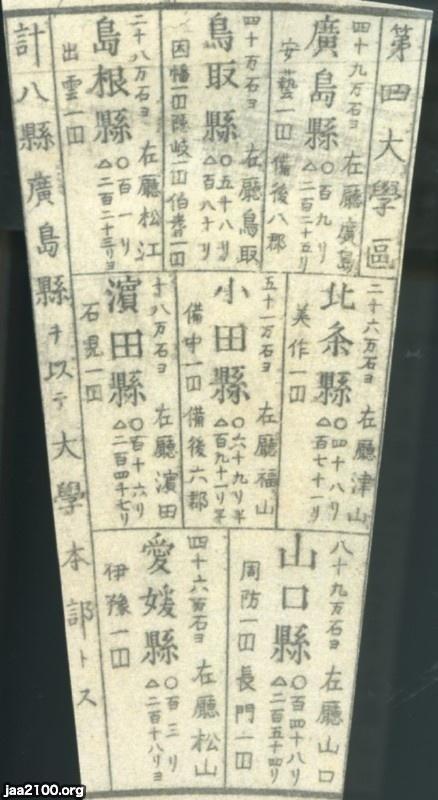 第四大學區
四十九万石ヨ 在廳廣島
廣島縣 〇百九リ △二百二十五リ
安藝一囗 備後八郡
四十万石ヨ 在廳鳥取
鳥取縣 〇五十八リ △百八十リ
因幡一囗隠岐一囗伯耆一囗
二十八万石ヨ 在廳松江
島根縣 〇百一リ △二百二十三リヨ
出雲一囗
二十六万石ヨ 在廳津山
北条縣 〇四十八リ △百七十一リ
美作一囗
五十一万石ヨ 在廳福山
小田縣 〇六十九リ半 △百九十一リ半
備中一囗 備後六郡
十八万石ヨ 在廳濱田
濱田縣 〇百十六リ △二百四十七リ
石見一囗
八十九万石ヨ 在廳山口
山口縣 〇百四十八リ △二百五十四リ
周防一囗 長門一囗
四十六万石ヨ 在廳松山
愛媛縣 〇百三リ △二百十八リヨ
伊豫一囗
計八縣廣島縣ヲ以テ大學本部トス
jaa2100.org